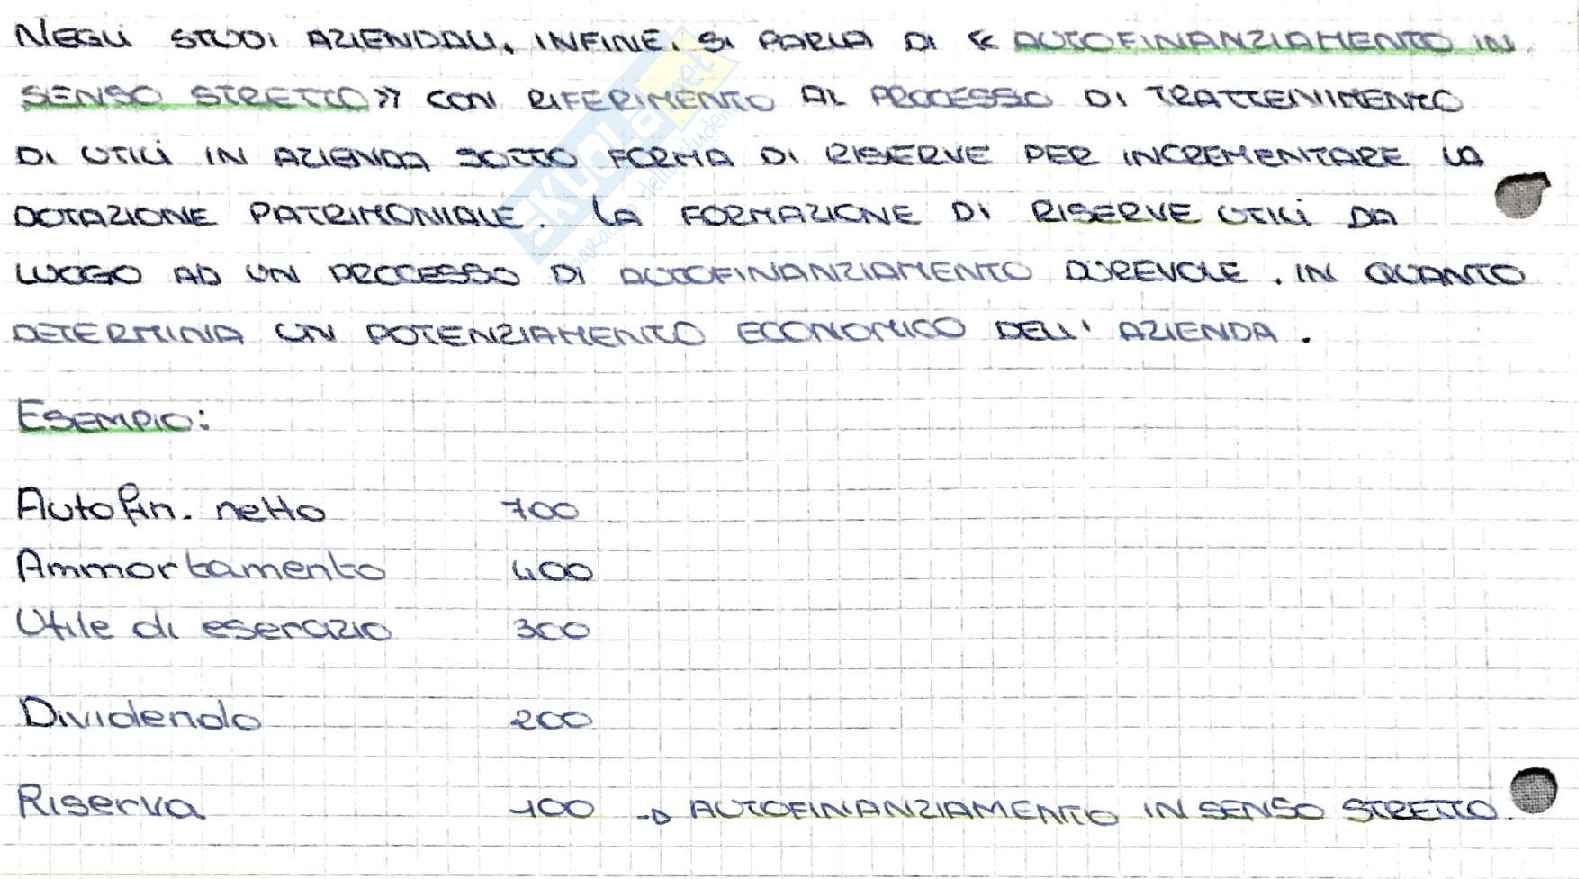 NEGLI STUDI AZIENDALI, INFINE, SI PARLA DI « AUTOFINANZIAMENTO IN
SENSO STRETTO» CON RIFERIMENTO AL PROCESSO DI TRATTENIMENTO
DI UTILI IN AZIENDA SOTTO FORMA DI RISERVE PER INCREMENTARE LA
DOTAZIONE PATRIMONIALE. LA FORMAZIONE DI RISERVE UTILI DA
LUOGO AD UN PROCESSO DI AUTOFINANZIAMENTO DUREVOLE. IN QUANTO
DETERMINA UN POTENZIAMENTO ECONOMICO DELL' AZIENDA.
ESEMPIO:
Autofin. netto 700
Ammortamento 400
Utile di esercizio 300
Dividendo 200
Riserva 100 → AUTOFINANZIAMENTO IN SENSO STRETTO.
SKUOLA.net